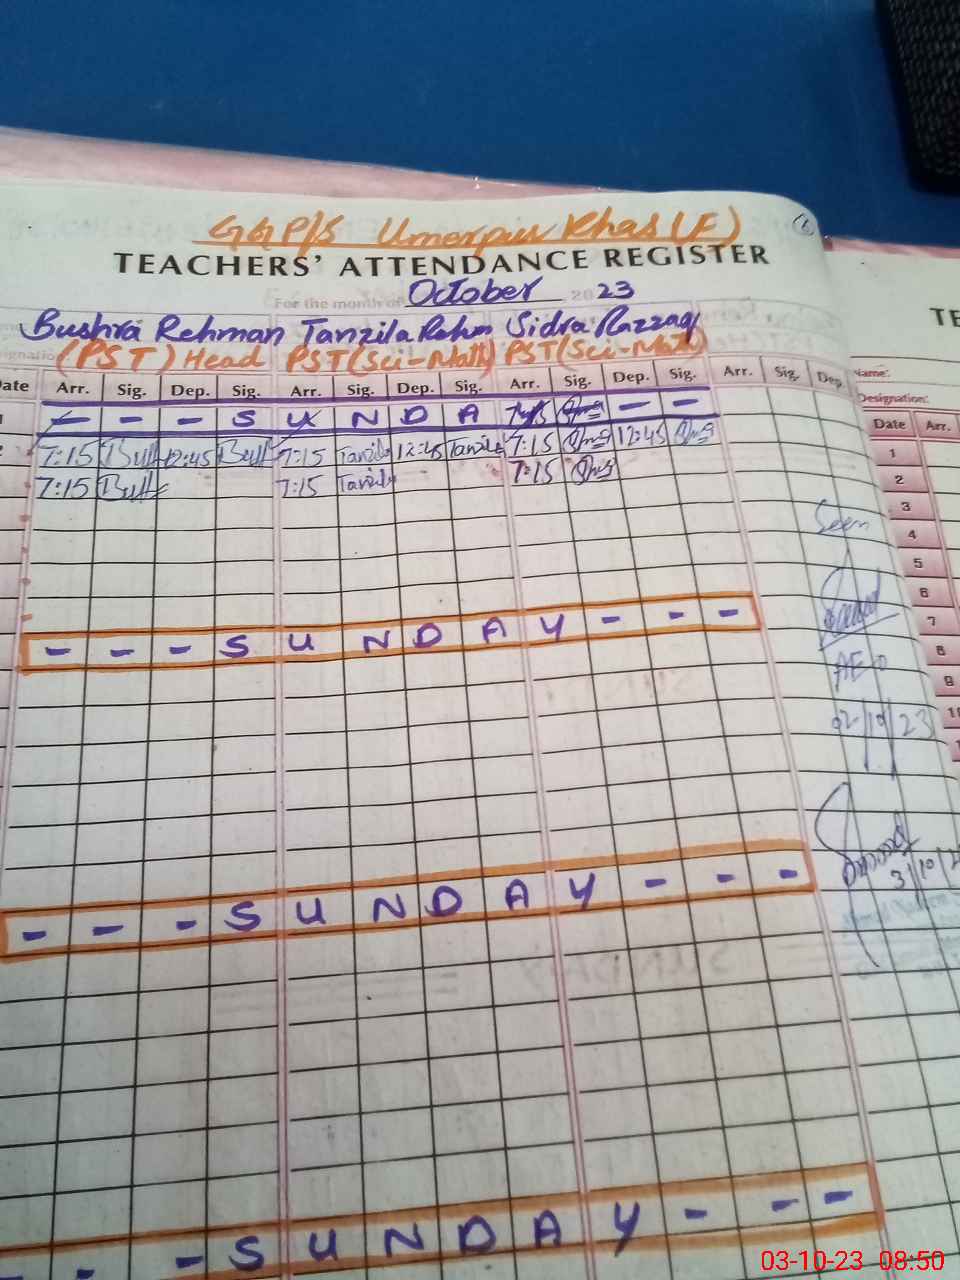 GGP/S Umerpur Khas (F)
TEACHERS' ATTENDANCE REGISTER
For the month of October 2023
Bushra Rehman Tanzila Rehm Sidra Razzaq
(PST) Head PST (Sci-Math) PST (Sci-Math)
Date Arr. Sig. Dep. Sig. Arr. Sig. Dep. Sig. Arr. Sig. Dep. Sig. Arr. Sig. Dep.
1 - - - S U N D A 7:15 - -
7:15 12:45 7:15 Tanzila 12:45 Tanzila 7:15 12:45
7:15 7:15 Tanzila 7:15
- - - S U N D A Y - - -
- - - S U N D A Y - - -
- - - S U N D A Y - - -
Seen
AEO
02/10/23
3/10/2
6
TE
Name:
Designation:
Date Arr.
1
2
3
4
5
6
7
8
9
10
03-10-23 08:50